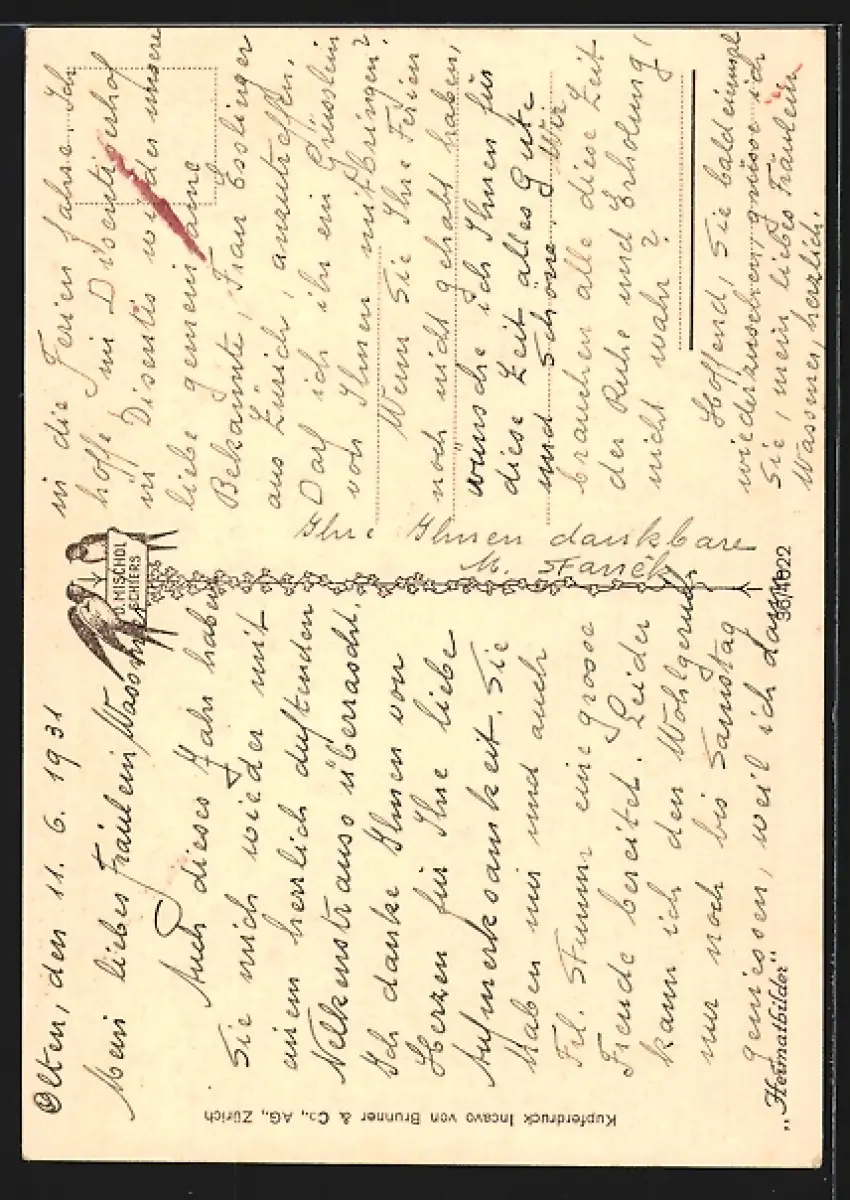 Olten, den 11. 6. 1931
Mein liebes Fräulein Wassmer
Auch dieses Jahr haben
Sie mich wieder mit
einem herrlich duftenden
Nelkenstrauss überrascht.
Ich danke Ihnen von
Herzen für Ihre liebe
Aufmerksamkeit. Sie
haben mir und auch
Frl. Stumm eine grosse
Freude bereitet. Leider
kann ich den Wohlgeruch
nur noch bis Samstag
geniessen, weil ich dann
in die Ferien fahre. Ich
hoffe im Disentiserhof
in Disentis wieder unsere
liebe gemeinsame
Bekannte, Frau Esslinger
aus Zürich, anzutreffen.
Darf ich ihr ein Grüsslein
von Ihnen mitbringen?
Wenn Sie Ihre Ferien
noch nicht gehabt haben,
wünsche ich Ihnen für
diese Zeit alles Gute
und Schöne. Wir
brauchen alle diese Zeit
der Ruhe und Erholung,
nicht wahr?
Hoffend, Sie bald einmal
wiederzusehen, grüsse ich
Sie, mein liebes Fräulein
Wassmer, herzlich.
Ihre Ihnen dankbare
M.
D. MISCHOL
SCHIERS
„Heimatbilder"
Kupferdruck Incavo von Brunner & Co., AG., Zürich